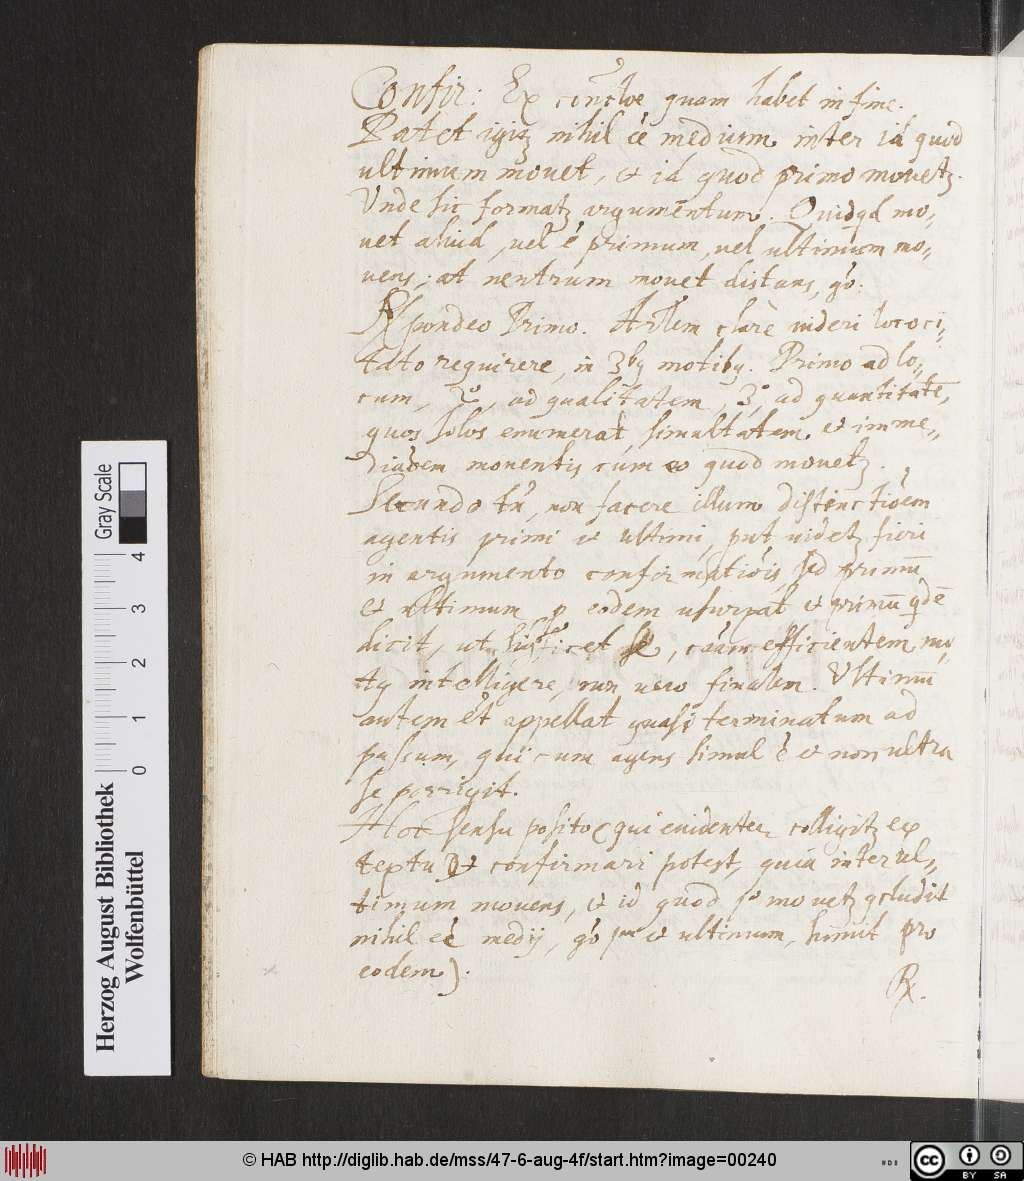 Confir: Ex conclõe quam habet in fine.
Patet igitꝫ nihil eē medium inter id quod
ultimum mouet, et id quod primo mouetꝫ.
Unde sic formatꝫ argumēntum. Quidqd mo„
uet aliud, uel ē primum, uel ultimum mo„
uens; at neutrum mouet distans, gõ.
Rspondeo Primo. Arlem clarè uideri loco ci„
tato requirere, in 3bꝯ motibꝯ. Primo ad lo„
cum, 2º, ad qualitatem, 3º, ad quantitatē,
quos solos enumerat, simultatem et imme„
diãõem mouentis cum eo quod mouetꝫ.
Secundo tñ, non facere illum distinctiõem
agentis primi et ultimi, put uidetꝫ fieri
in argumento confirmatiõis, sed primū
et ultimum p eodem usurpat et primū qdē
dicit, ut significet se, cãum efficientem mo„
tꝯ intelligere, non uero finalem. Ultimū
autem et appellat quasi terminatum ad
passum, qui cum agens simul ē et non ultra
se porrigit.
Hoc sensu posito (qui euidenter colligitꝫ ex
textu et confirmari potest, quia inter ul„
timum mouens, et id quod pº mouetꝫ qcludit
nihil eē medij, gõ pum et ultimum, sumit pro
eodem).
Rx.
Herzog August Bibliothek
Wolfenbüttel
Gray Scale
0 1 2 3 4
© HAB http://diglib.hab.de/mss/47-6-aug-4f/start.htm?image=00240
cc BY SA